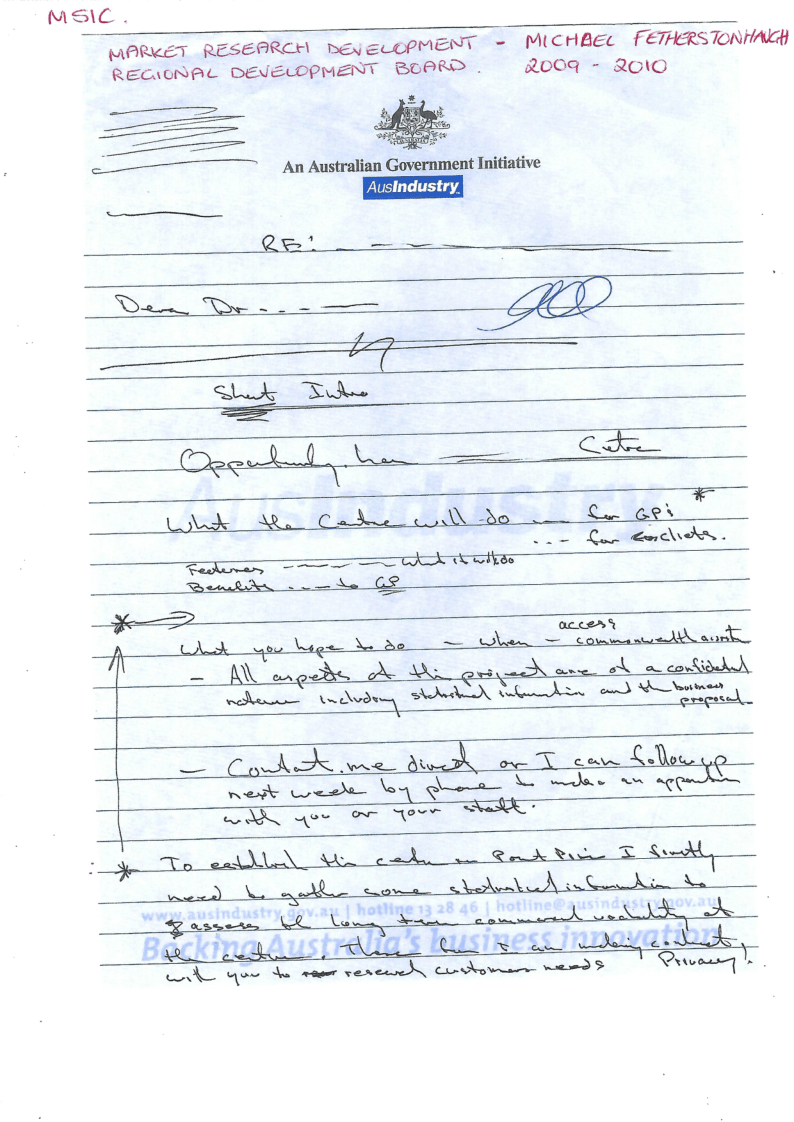 MSIC.
MARKET RESEARCH DEVELOPMENT - MICHAEL FETHERSTONHAUGH
REGIONAL DEVELOPMENT BOARD. 2009 - 2010
An Australian Government Initiative
AusIndustry
RE:
Dear Dr - - -
Short Intro
Opportunity.
What the Centre will do --- for GPs *
--- for clients.
Features - - - - - What it will do
Benefits - - - to GP
*
access
What you hope to do - when - commonwealth
- All aspects of this project are of a confidential
nature including statistical information and the business
proposal
- Contact me direct or I can follow up
next week by phone to make an appointment
with you or your staff.
* To establish this centre in Port Pirie I firstly
need to gather some statistical information to
assess the long term commercial viability of
www.ausindustry.gov.au | hotline 13 28 46 | hotline@ausindustry.gov.au
the centre. Therefore I am making contact
Backing Australia's business innovation
with you to research customer needs Privacy!